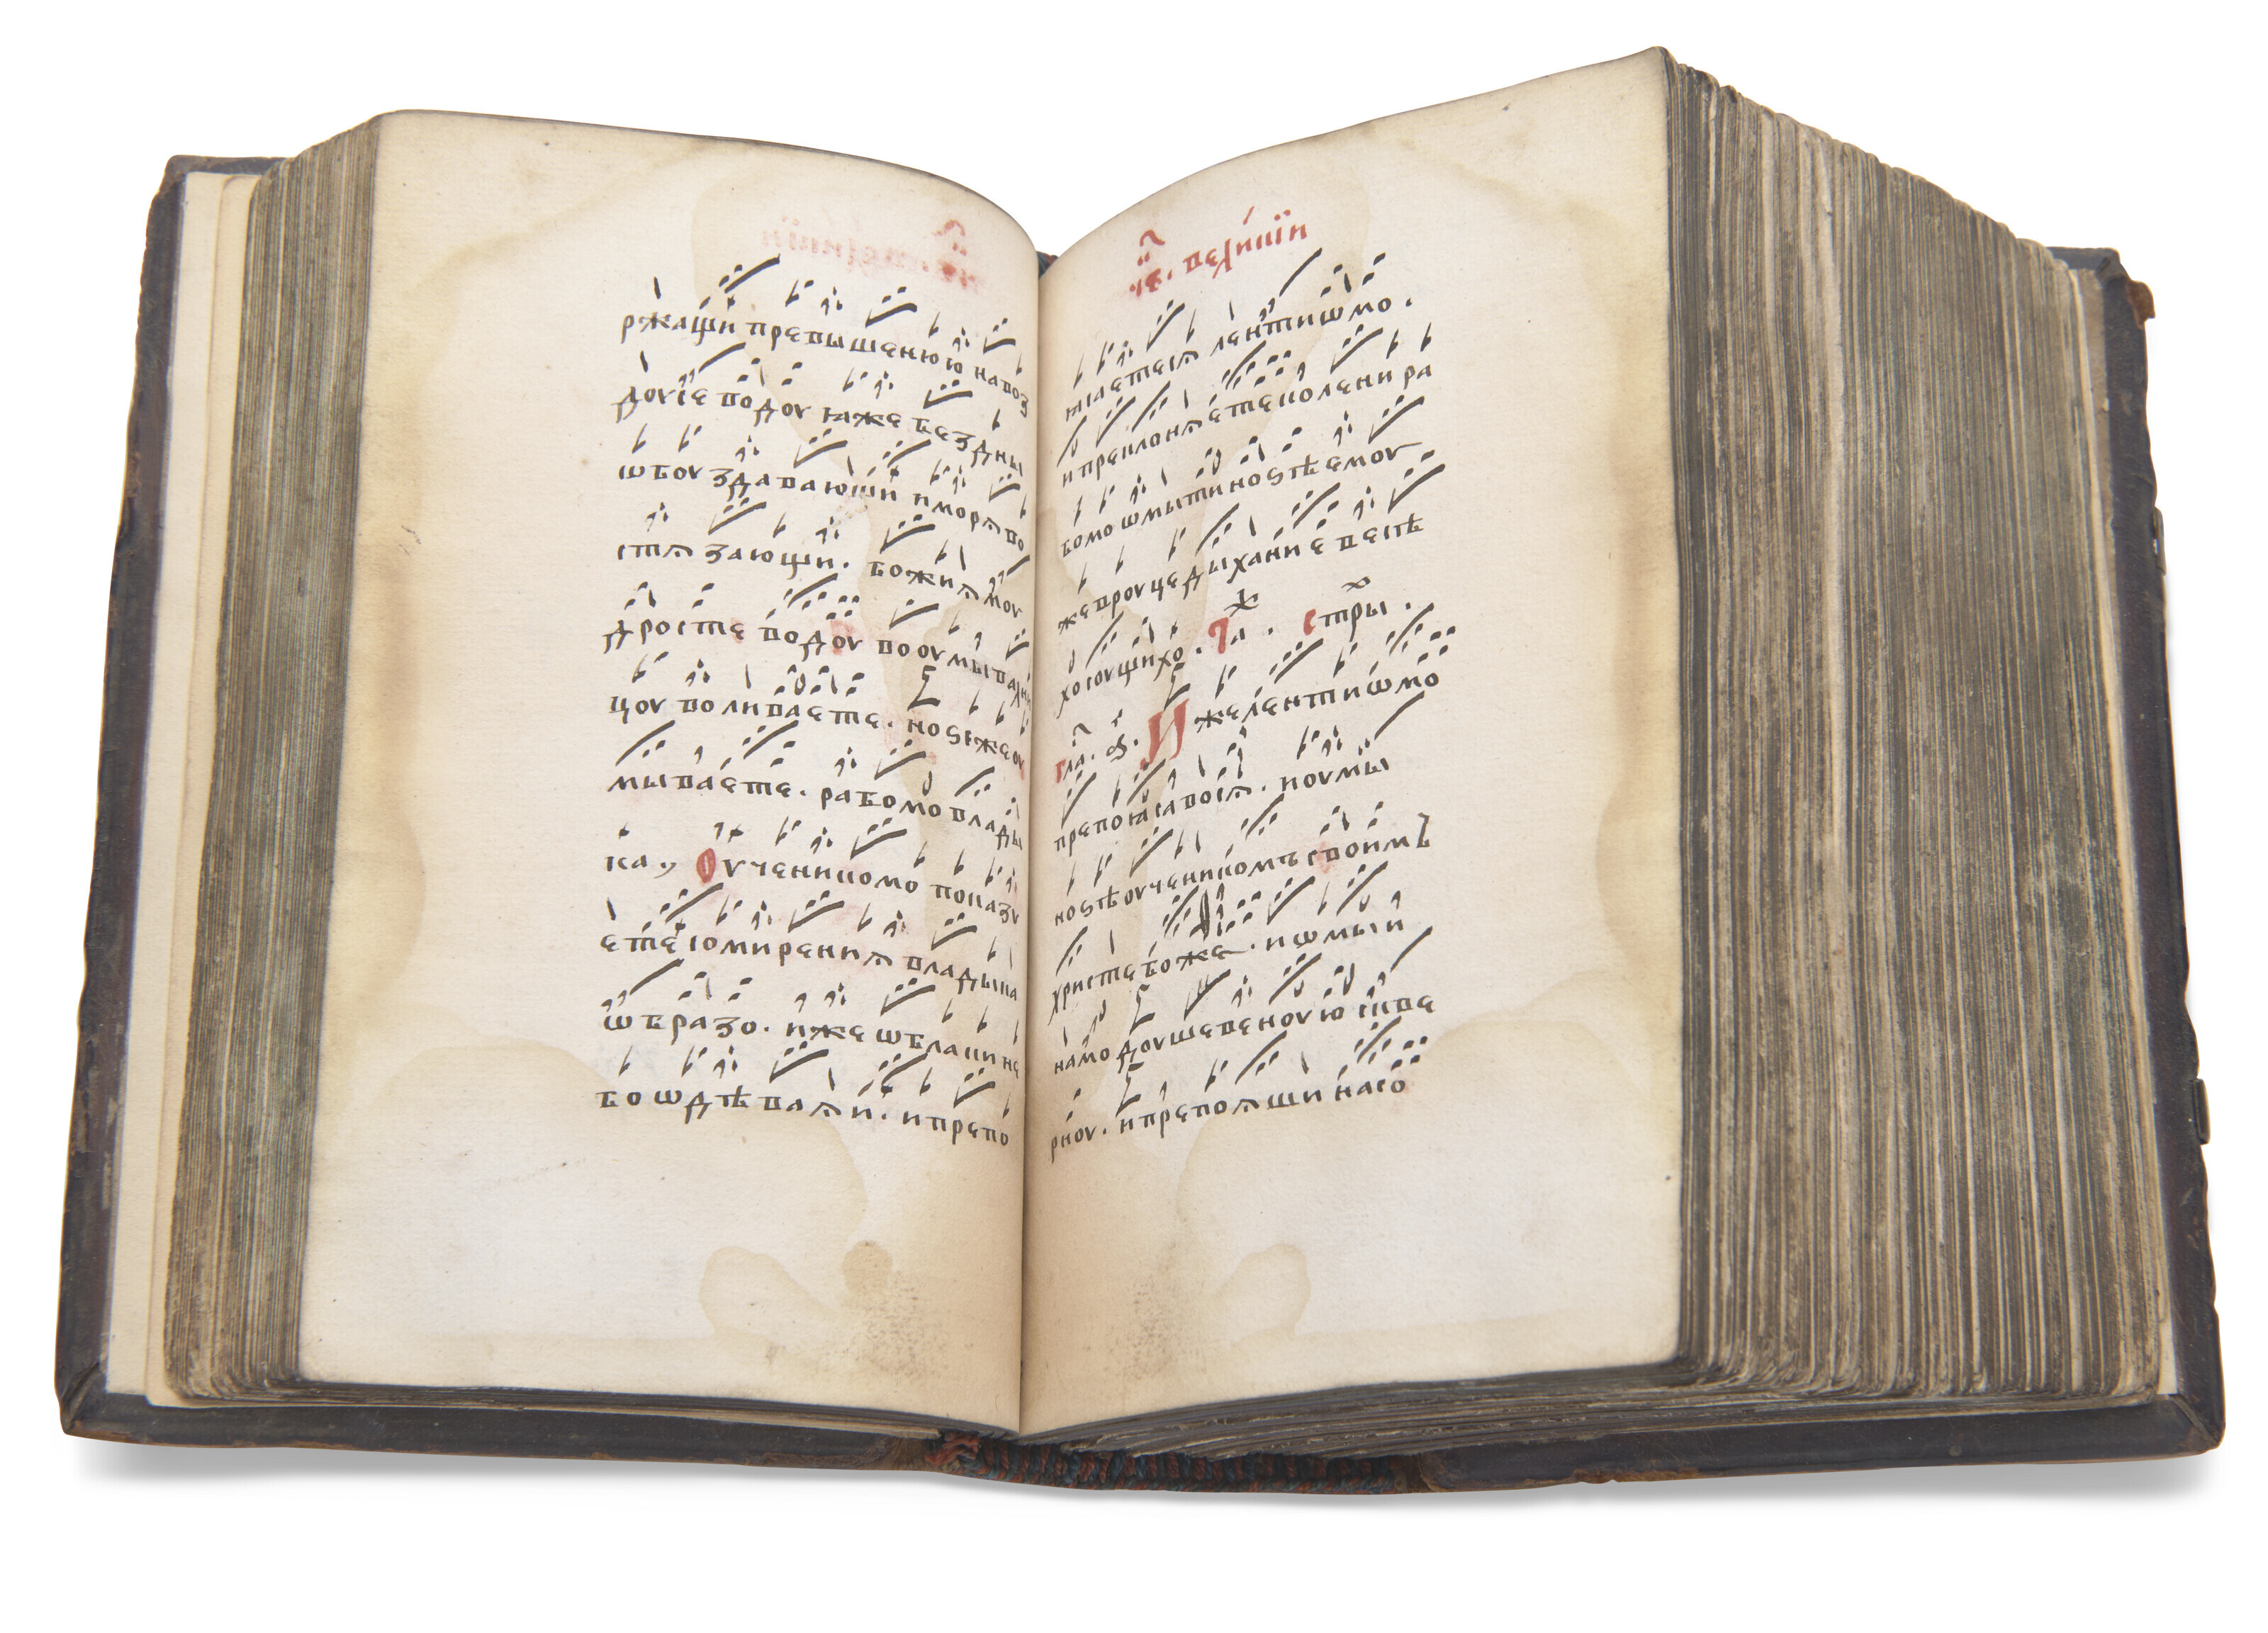 ржащи превышенюю на воз
доусе водоу ꙗже бездны
ѡбоуздавающи и морѧ во
стѧзающи. божиѧ моу
дросте водоу во оумывални
цоу воливаете. нозѣже оу
мываете. рабомо влады
ка, Оученикомо показу
ете сомирениѧ владыка
ѡбразо. иже ѡблаки не
бо ѡдѣваѧи. и препо
ꙗсаетсѧ лентиѡмо.
и преклонѧете колени ра
бомо ѡмыти нозѣ емоу
же в роуце дыхание весѣ
хо соущихо. стры.
гла. И же лентиѡмо
препоꙗсавосѧ. и оумы
нозѣ оученикомъ своим
христе боже. и ѡмыи
намо доушевеноую скве
рноу. и препоѧши насо